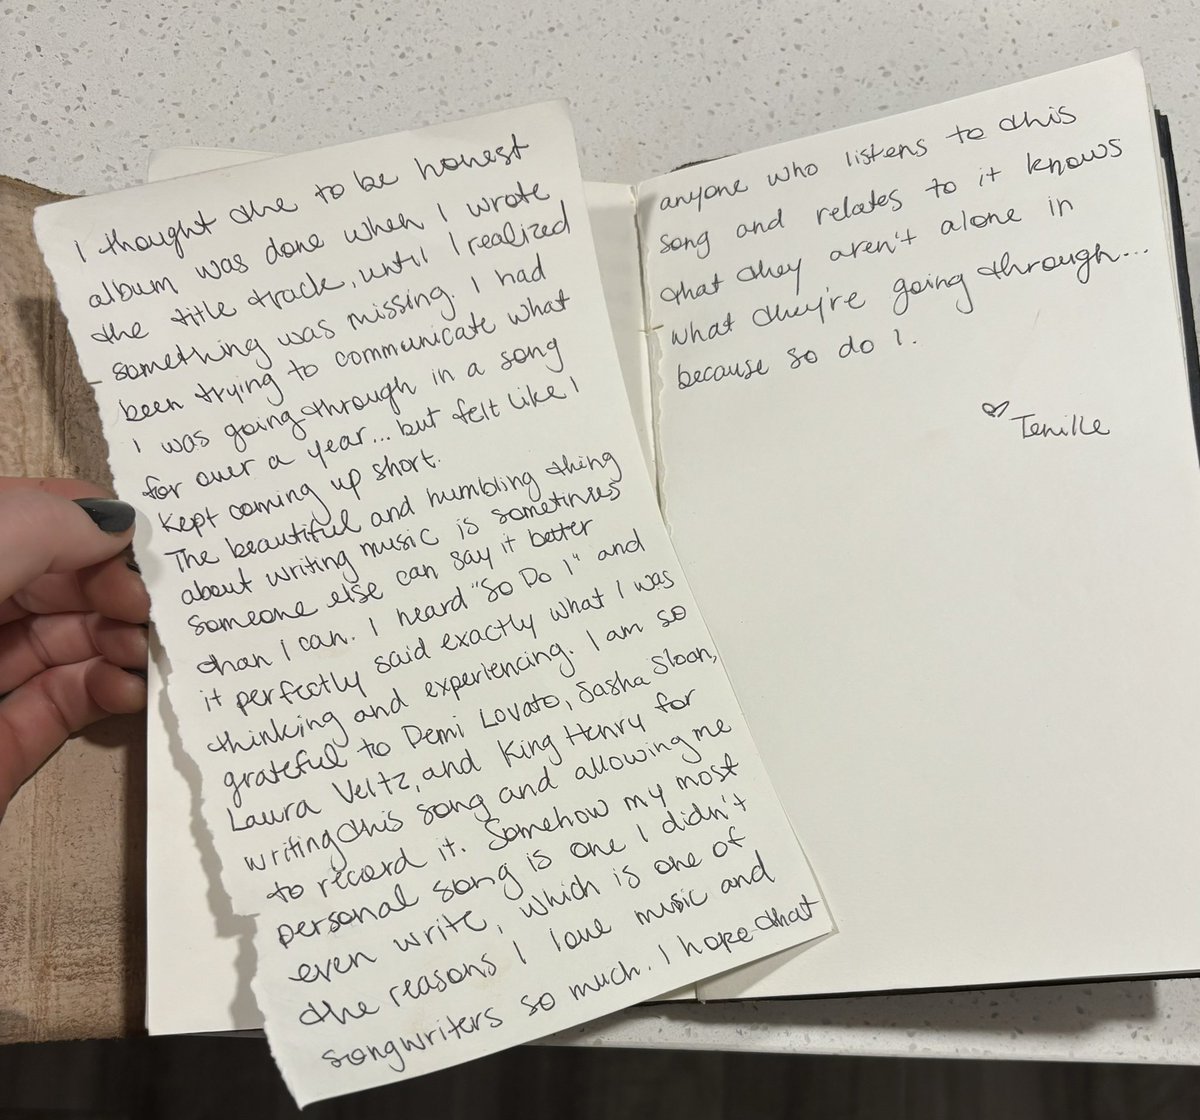 I thought the to be honest
album was done when I wrote
the title track, until I realized
something was missing. I had
been trying to communicate what
I was going through in a song
for over a year... but felt like I
kept coming up short.
The beautiful and humbling thing
about writing music is sometimes
someone else can say it better
than I can. I heard "So Do I" and
it perfectly said exactly what I was
thinking and experiencing. I am so
grateful to Demi Lovato, Sasha Sloan,
Laura Veltz, and King Henry for
writing this song and allowing me
to record it. Somehow my most
personal song is one I didn't
even write, which is one of
the reasons I love music and
songwriters so much. I hope that
anyone who listens to this
song and relates to it knows
that they aren't alone in
what they're going through...
because so do I.
♡ Tenille